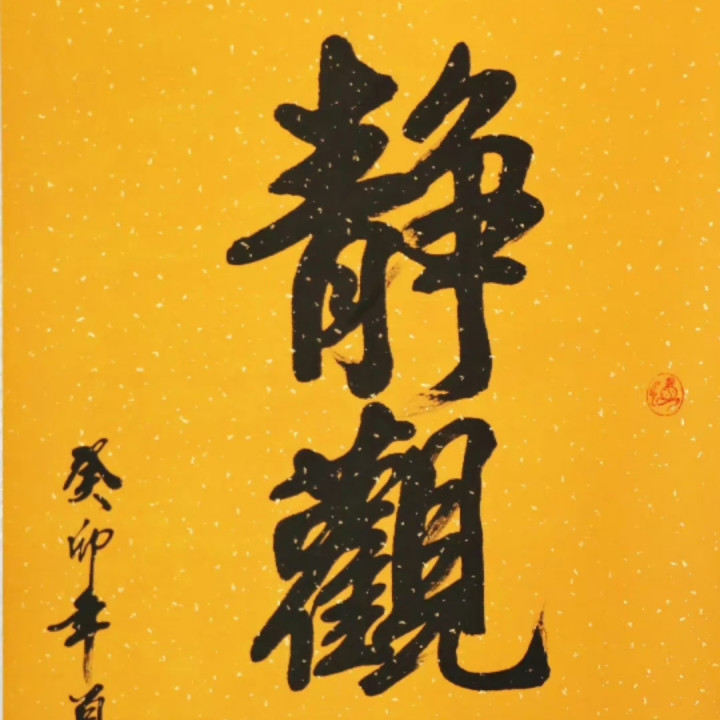 静觀
癸卯年